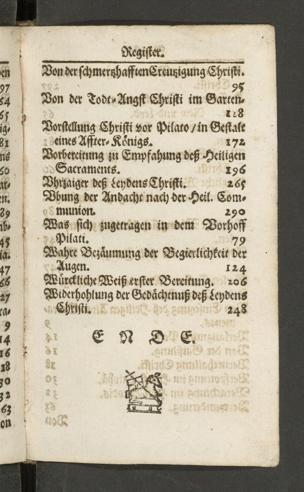 Register.
Von der schmertzhafften Creutzigung Christi.
95
Von der Todt-Angst Christi im Garten.
118
Vorstellung Christi vor Pilato / in Gestalt
eines Affter-Königs. 172
Vorbereitung zu Empfahung deß Heiligen
Sacraments. 196
Vhrzaiger deß Leydens Christi. 265
Vbung der Andacht nach der Heil. Com-
munion. 290
Was sich zugetragen in dem Vorhoff
Pilati. 79
Wahre Bezäumung der Begierlichkeit der
Augen. 124
Würckliche Weiß erster Bereitung. 206
Widerhohlung der Gedächtnuß deß Leydens
Christi. 248
E N D E.